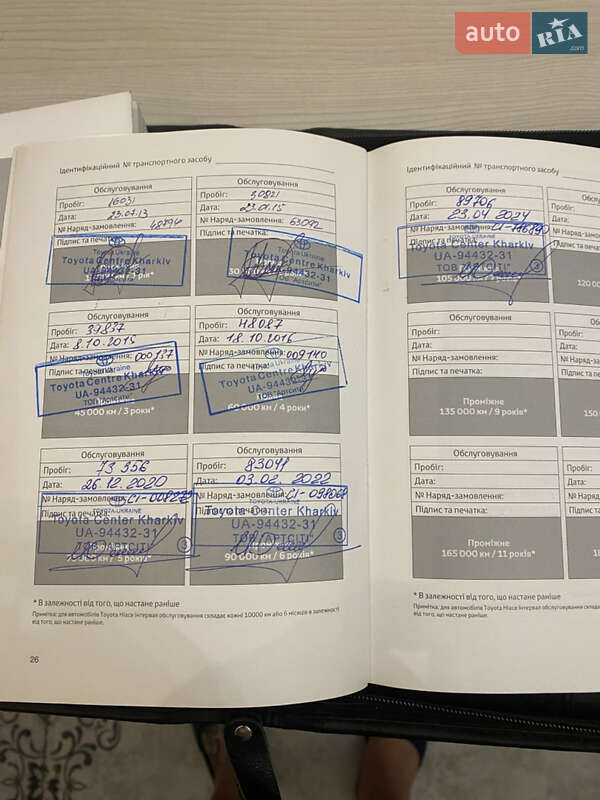 auto RIA .com
Ідентифікаційний № транспортного засобу
Обслуговування
Пробіг: 16031
Дата: 23.07.13
№ Наряд-замовлення: 48894
Підпис та печатка:
Toyota Ukraine
Toyota Centre Kharkiv
UA-94432-31
Обслуговування
Пробіг: 30821
Дата: 23.01.15
№ Наряд-замовлення: 63092
Підпис та печатка:
Toyota Ukraine
Toyota Centre Kharkiv
UA-94432-31
Обслуговування
Пробіг: 37837
Дата: 8.10.2015
№ Наряд-замовлення: 000137
Підпис та печатка:
Toyota Ukraine
Toyota Centre Kharkiv
UA-94432-31
ТОВ "Артсіті"
45 000 км / 3 роки*
Обслуговування
Пробіг: 48087
Дата: 18.10.2016
№ Наряд-замовлення: 009140
Підпис та печатка:
Toyota Centre Kharkiv
UA-94432-31
ТОВ "Артсіті"
60 000 км / 4 роки*
Обслуговування
Пробіг: 73 356
Дата: 26.12.2020
№ Наряд-замовлення: C1-008279
Підпис та печатка:
TOYOTA-UKRAINE
Toyota Center Kharkiv
UA-94432-31
ТОВ "АРТСІТІ"
3
75 000 км / 5 років*
Обслуговування
Пробіг: 83041
Дата: 03.02.2022
№ Наряд-замовлення: C1-098068
Підпис та печатка:
TOYOTA-UKRAINE
Toyota Center Kharkiv
UA-94432-31
ТОВ "АРТСІТІ"
3
90 000 км / 6 років*
* В залежності від того, що настане раніше
Примітка: для автомобілів Toyota Hiace інтервал обслуговування складає кожні 10000 км або 6 місяців в залежності
від того, що настане раніше.
26
Ідентифікаційний № транспортного засобу
Обслуговування
Пробіг: 89706
Дата: 23.04.2024
№ Наряд-замовлення:
Підпис та печатка:
TOYOTA-UKRAINE
Toyota Center Kharkiv
UA-94432-31
ТОВ "АРТСІТІ"
3
120 00
Обслуговування
Пробіг:
Дата:
№ Наряд-замовлення:
Підпис та печатка:
Проміжне
135 000 км / 9 років*
150
Обслуговування
Пробіг:
Дата:
№ Наряд-замовлення:
Підпис та печатка:
Проміжне
165 000 км / 11 років*
* В залежності від того, що настане раніше
Примітка: для автомобілів Toyota Hiace інтервал обслуговування складає
від того, що настане раніше.